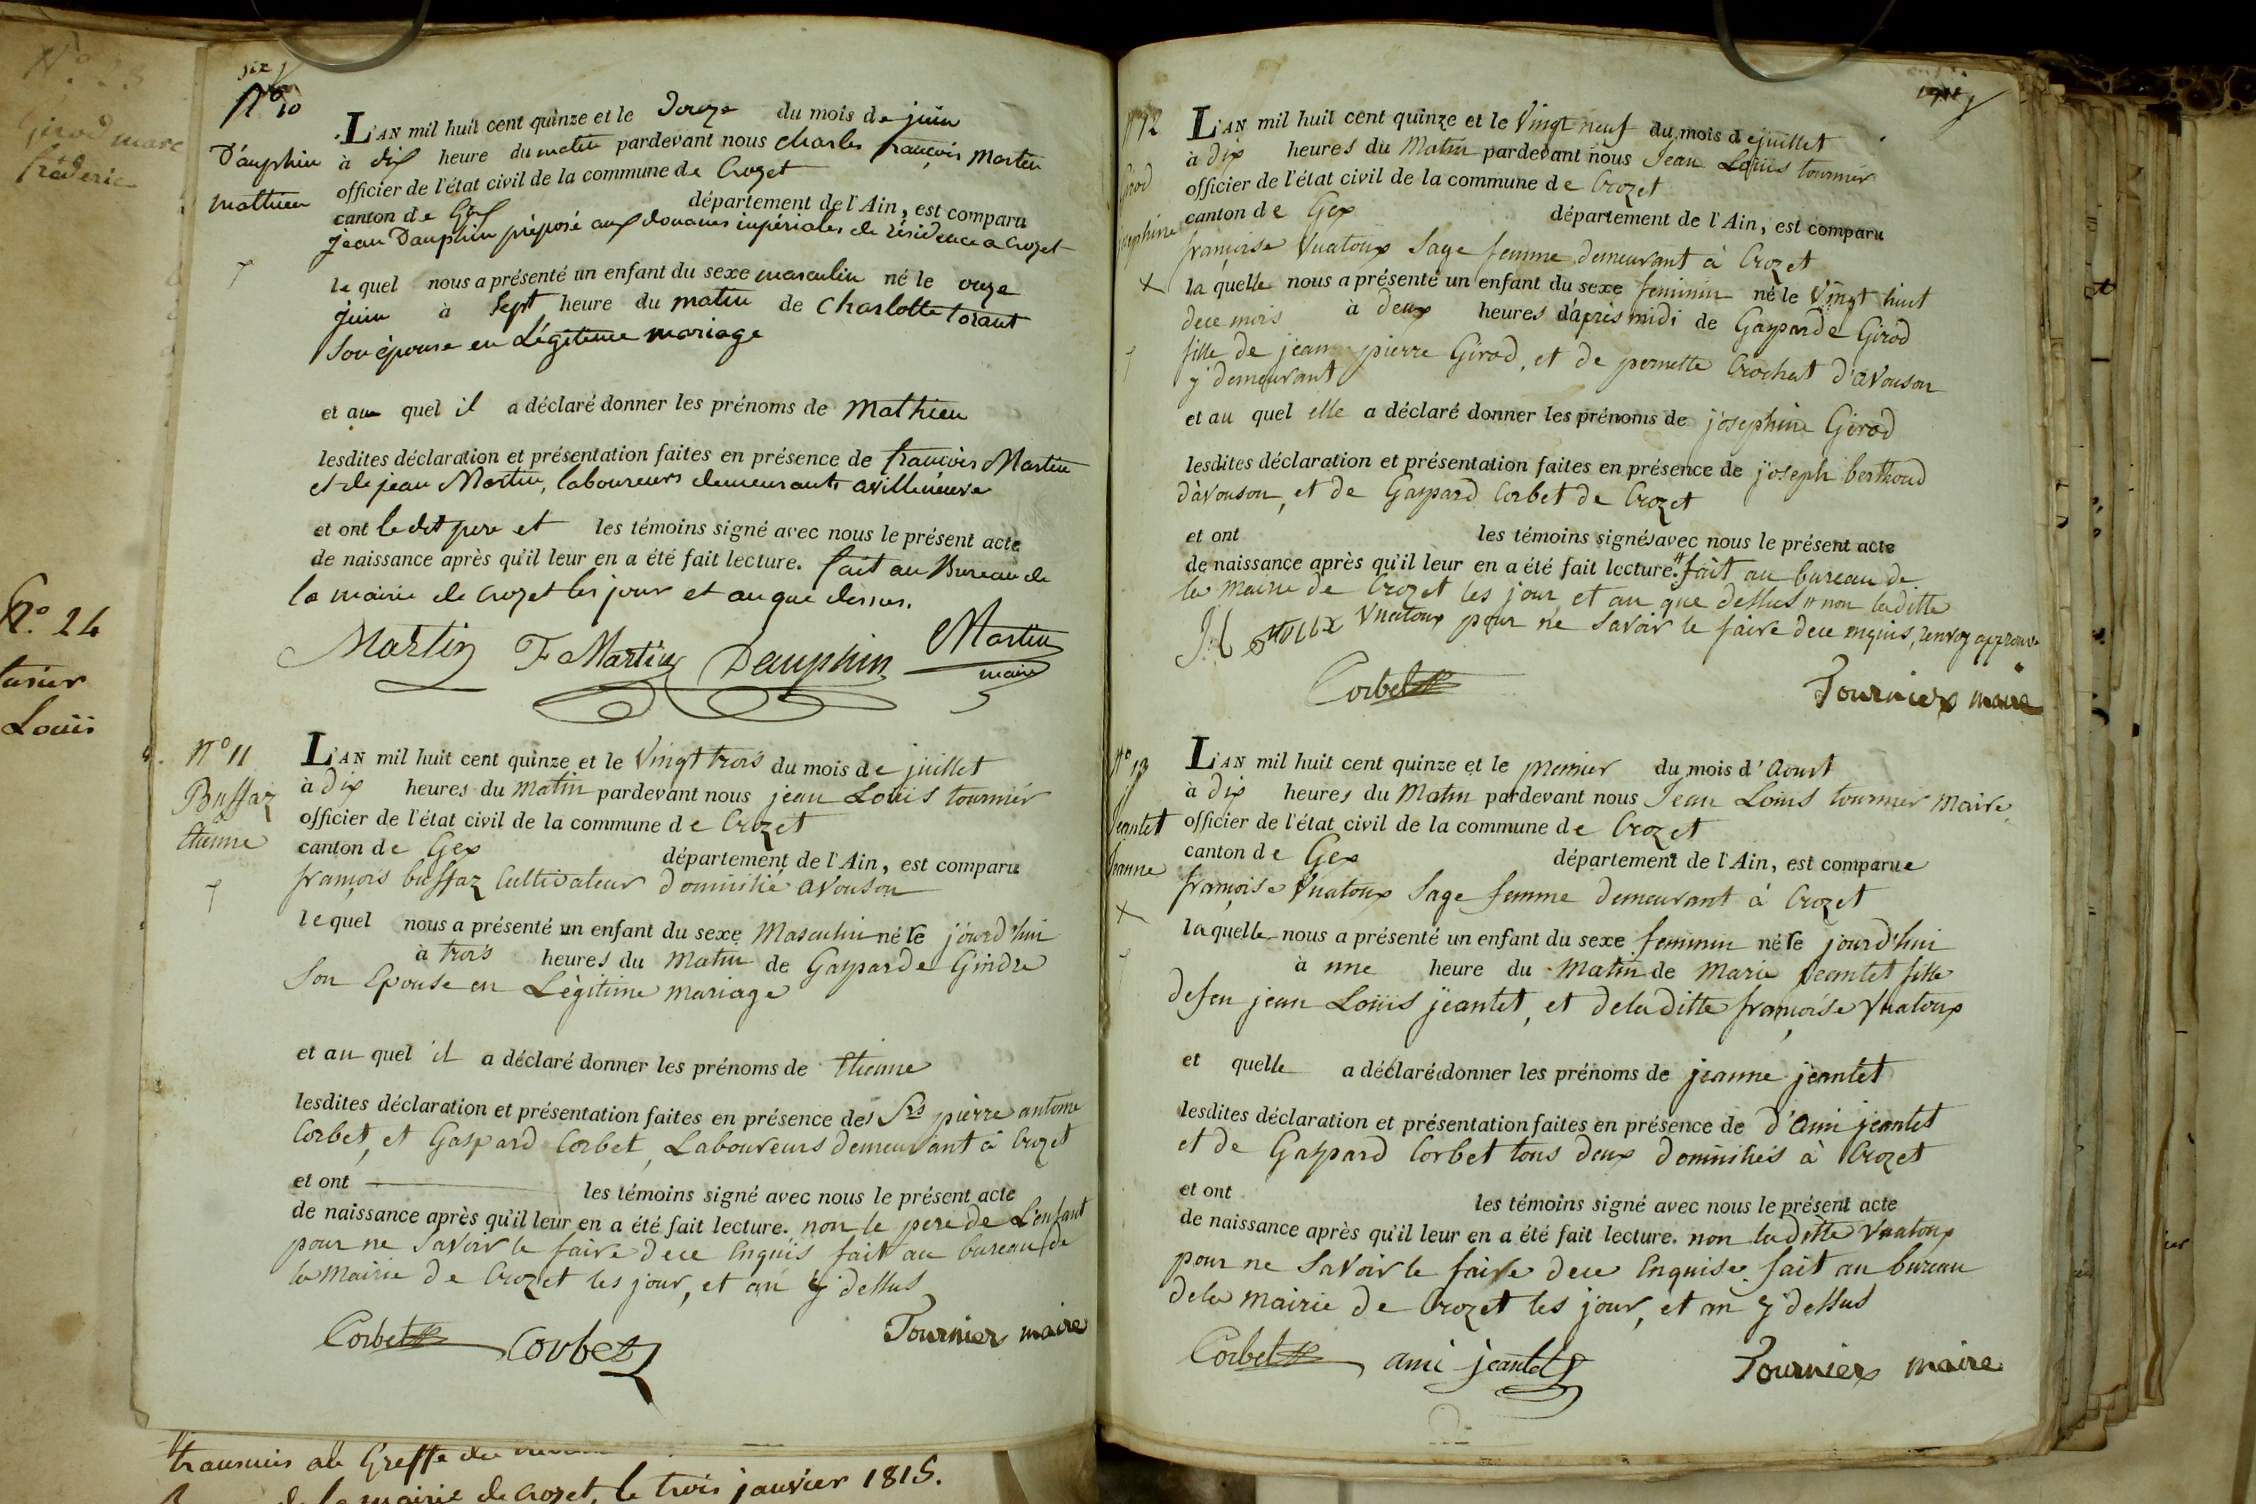 six
N.o 10
Dauphin
mathieu
L'AN mil huit cent quinze et le Douze du mois de juin
à dix heure du matin pardevant nous charles françois Martin
officier de l'état civil de la commune de Crozet
canton de Gex département de l'Ain, est comparu
jean Dauphin préposé aux douanes impériales de résidence a Crozet
le quel nous a présenté un enfant du sexe masculin né le onze
juin à sept heure du matin de Charlotte torant
Son épouse en Légitime mariage
et au quel il a déclaré donner les prénoms de Mathieu
lesdites déclaration et présentation faites en présence de françois Martin
et de jean Martin, laboureurs demeurants avilleneuve
et ont le dit pere et les témoins signé avec nous le présent acte
de naissance après qu'il leur en a été fait lecture. fait au Bureau de
la mairie de crozet les jour et an que dessus.
Martin F Martin Dauphin Martin
maire
N.o 11
Buffaz
Etienne
L'AN mil huit cent quinze et le Vingt trois du mois de juillet
à dix heures du Matin pardevant nous jean Louis tournier
officier de l'état civil de la commune de Crozet
canton de Gex département de l'Ain, est comparu
françois buffaz Cultivateur domicilié avouson
le quel nous a présenté un enfant du sexe Masculin né le jourd'hui
à trois heures du Matin de Gasparde Gindre
Son Epouse en Légitime mariage
et au quel il a déclaré donner les prénoms de Etienne
lesdites déclaration et présentation faites en présence des Srs pierre antoine
Corbet, et Gaspard Corbet, Laboureurs demeurant à Crozet
et ont les témoins signé avec nous le présent acte
de naissance après qu'il leur en a été fait lecture. non le pere de L'enfant
pour ne Savoir le faire de ce Enquis fait au bureau de
la Mairie de Crozet les jour, et an y dessus
Corbet Corbet Tournier maire
N.o 12
Girod
josephine
L'AN mil huit cent quinze et le Vingt neuf du mois de juillet
à dix heures du Matin pardevant nous Jean Louis tournier
officier de l'état civil de la commune de Crozet
canton de Gex département de l'Ain, est comparu
françoise Vuatoux Sage femme demeurant à Crozet
la quelle nous a présenté un enfant du sexe feminin né le Vingt huit
de ce mois à deux heures d'après midi de Gasparde Girod
fille de jean pierre Girod, et de pernette Crochat d'avouson
y demeurant
et au quel elle a déclaré donner les prénoms de josephine Girod
lesdites déclaration et présentation faites en présence de joseph berthoud
d'avouson, et de Gaspard Corbet de Crozet
et ont les témoins signés avec nous le présent acte
de naissance après qu'il leur en a été fait lecture. fait au bureau de
la Mairie de Crozet les jour, et an que dessus non laditte
Vuatoux pour ne Savoir le faire de ce enquis, renvoy approuvé
Corbet Tournier maire
N.o 13
jeantet
jeanne
L'AN mil huit cent quinze et le premier du mois d'Aoust
à dix heures du Matin pardevant nous Jean Louis tournier Maire
officier de l'état civil de la commune de Crozet
canton de Gex département de l'Ain, est comparue
françoise Vuatoux Sage femme demeurant à Crozet
laquelle nous a présenté un enfant du sexe feminin né le jourd'hui
à une heure du Matin de Marie jeantet fille
defeu jean Louis jeantet, et deladitte françoise Vuatoux
et quelle a déclaré donner les prénoms de jeanne jeantet
lesdites déclaration et présentation faites en présence de d'Ami jeantet
et de Gaspard Corbet tous deux domiciliés à Crozet
et ont les témoins signé avec nous le présent acte
de naissance après qu'il leur en a été fait lecture. non laditte Vuatoux
pour ne Savoir le faire de ce Enquise fait au bureau
dela Mairie de Crozet les jour, et an y dessus
Corbet ami jeantet Tournier maire
Girod marc
frédéric
N.o 24
Louis
transmis au Greffe du
de la mairie de crozet, le trois janvier 1815.